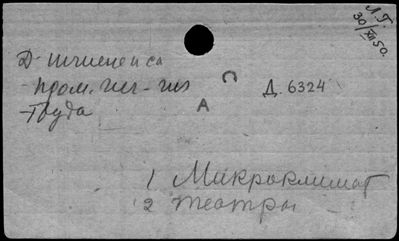 Л.Г.
30/XII 50.
Д-гигиенеиса
-пром. гиг-гиг
С
А
Д. 6324
-Труда
1 Микроклимат
2 театры